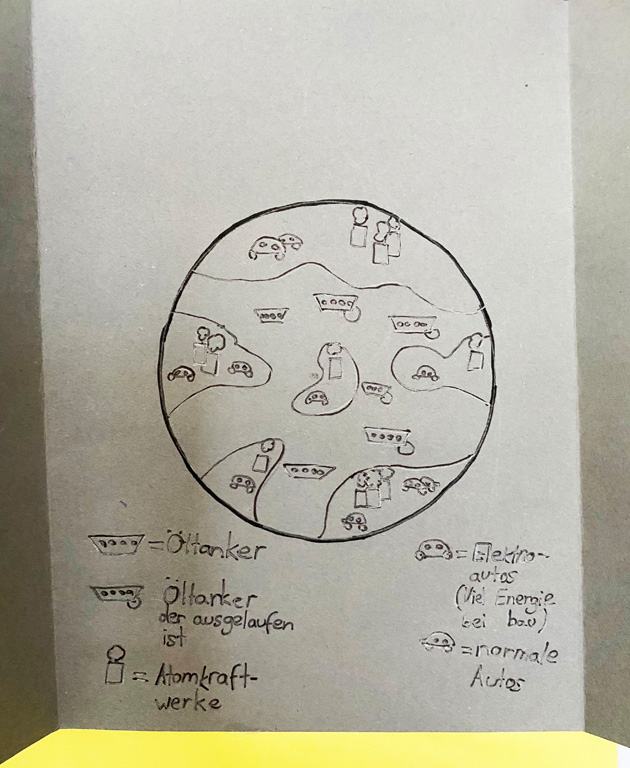 = Öltanker
Öltanker
der ausgelaufen
ist
= Atomkraft-
werke
= Elektro-
autos
(Viel Energie
bei bau)
= normale
Autos